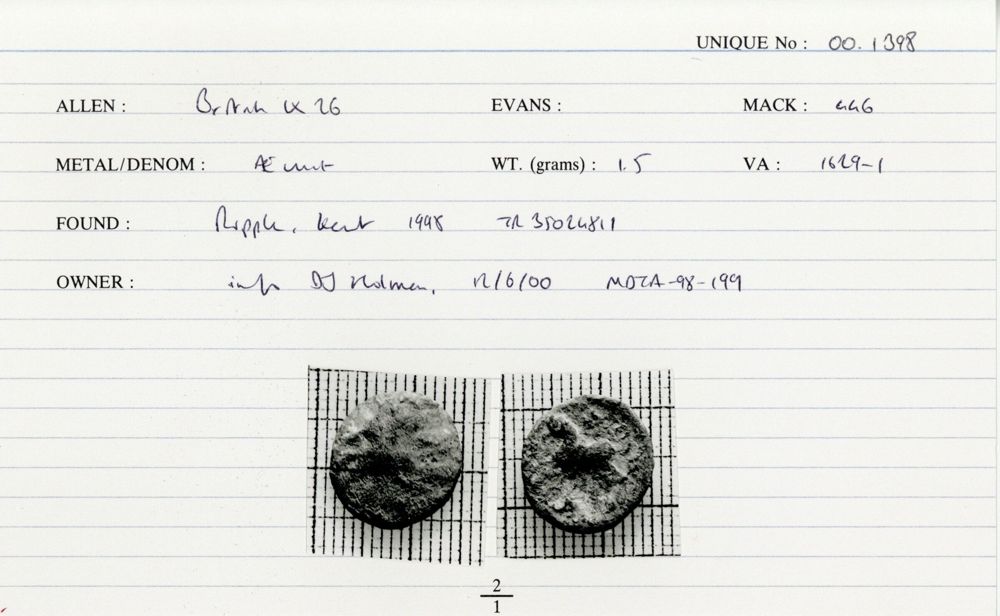 UNIQUE No : 00.1398
ALLEN : British LX 26 EVANS : MACK : 446
METAL/DENOM : Æ unit WT. (grams) : 1.5 VA : 1629-1
FOUND : Ripple, Kent 1998 TR 35024811
OWNER : info DJ Holman, 12/6/00
2
1